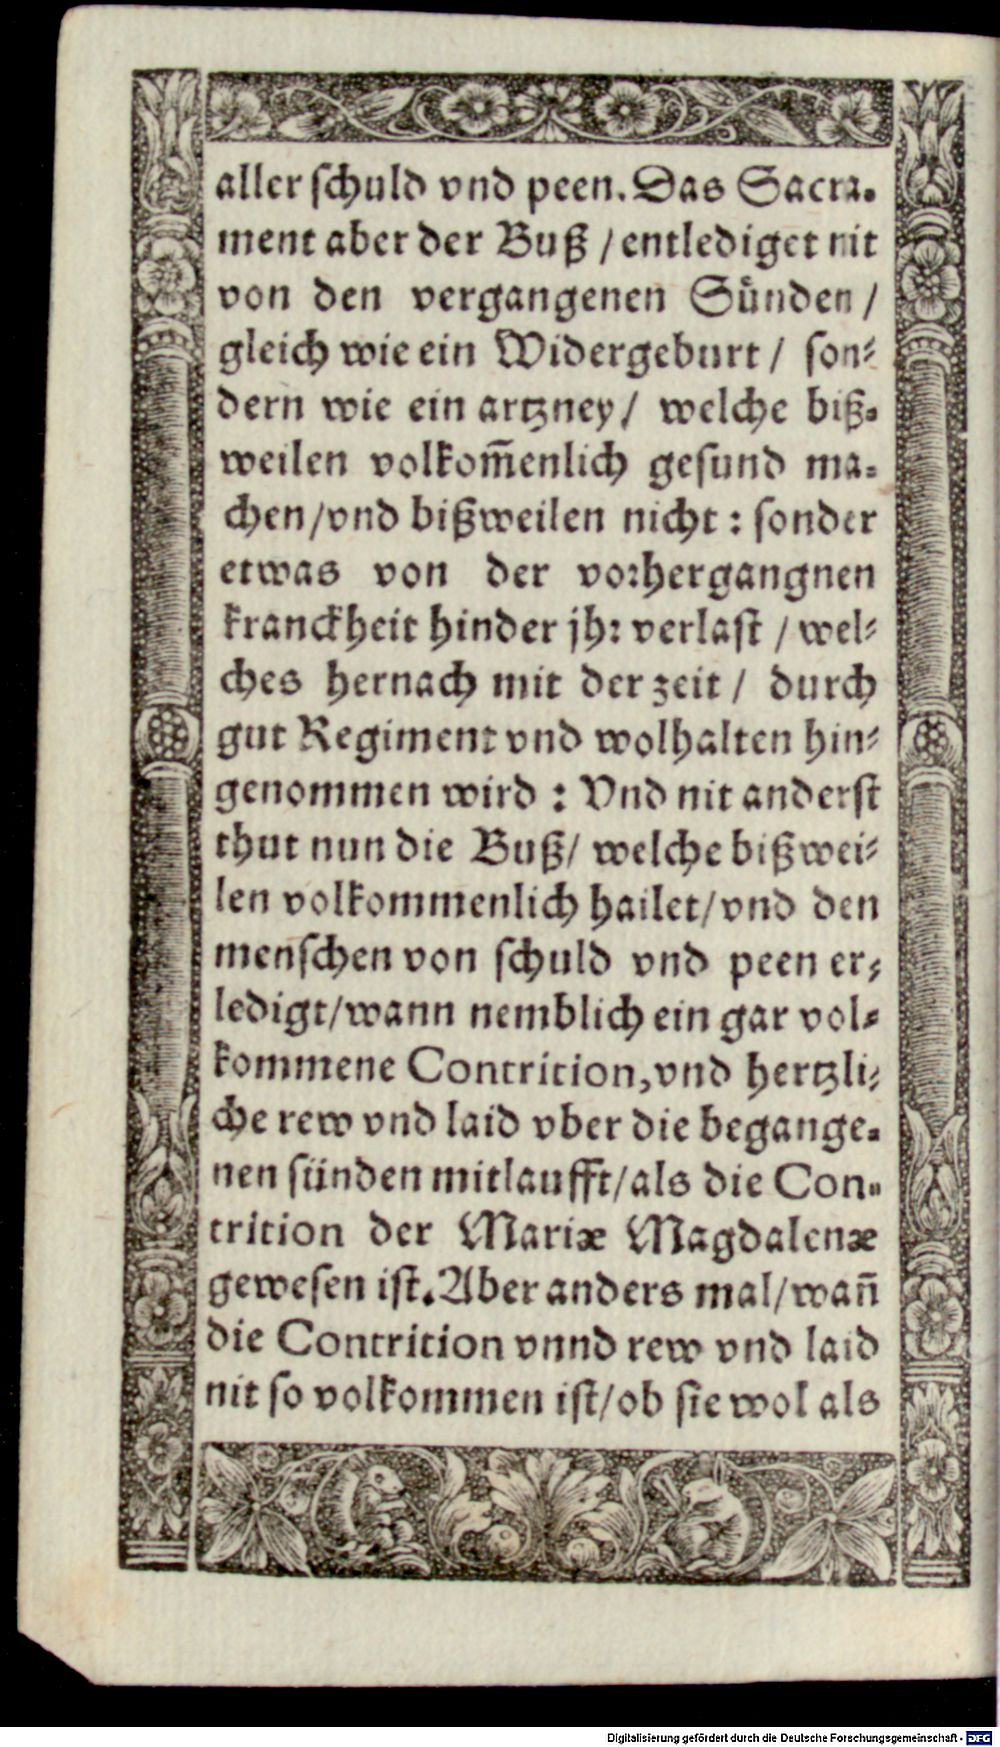 aller schuld vnd peen. Das Sacra-
ment aber der Buß / entlediget nit
von den vergangenen Sünden /
gleich wie ein Widergeburt / son-
dern wie ein artzney / welche biß-
weilen volkom̃enlich gesund ma-
chen / vnd bißweilen nicht : sonder
etwas von der vorhergangnen
kranckheit hinder jhr verlast / wel-
ches hernach mit der zeit / durch
gut Regiment vnd wolhalten hin-
genommen wird : Vnd nit anderst
thut nun die Buß / welche bißwei-
len volkommenlich hailet / vnd den
menschen von schuld vnd peen er-
ledigt / wann nemblich ein gar vol-
kommene Contrition, vnd hertzli-
che rew vnd laid vber die begange-
nen sünden mitlaufft / als die Con-
trition der Mariæ Magdalenæ
gewesen ist. Aber anders mal / wañ
die Contrition vnnd rew vnd laid
nit so volkommen ist / ob sie wol als
Digitalisierung gefördert durch die Deutsche Forschungsgemeinschaft - DFG